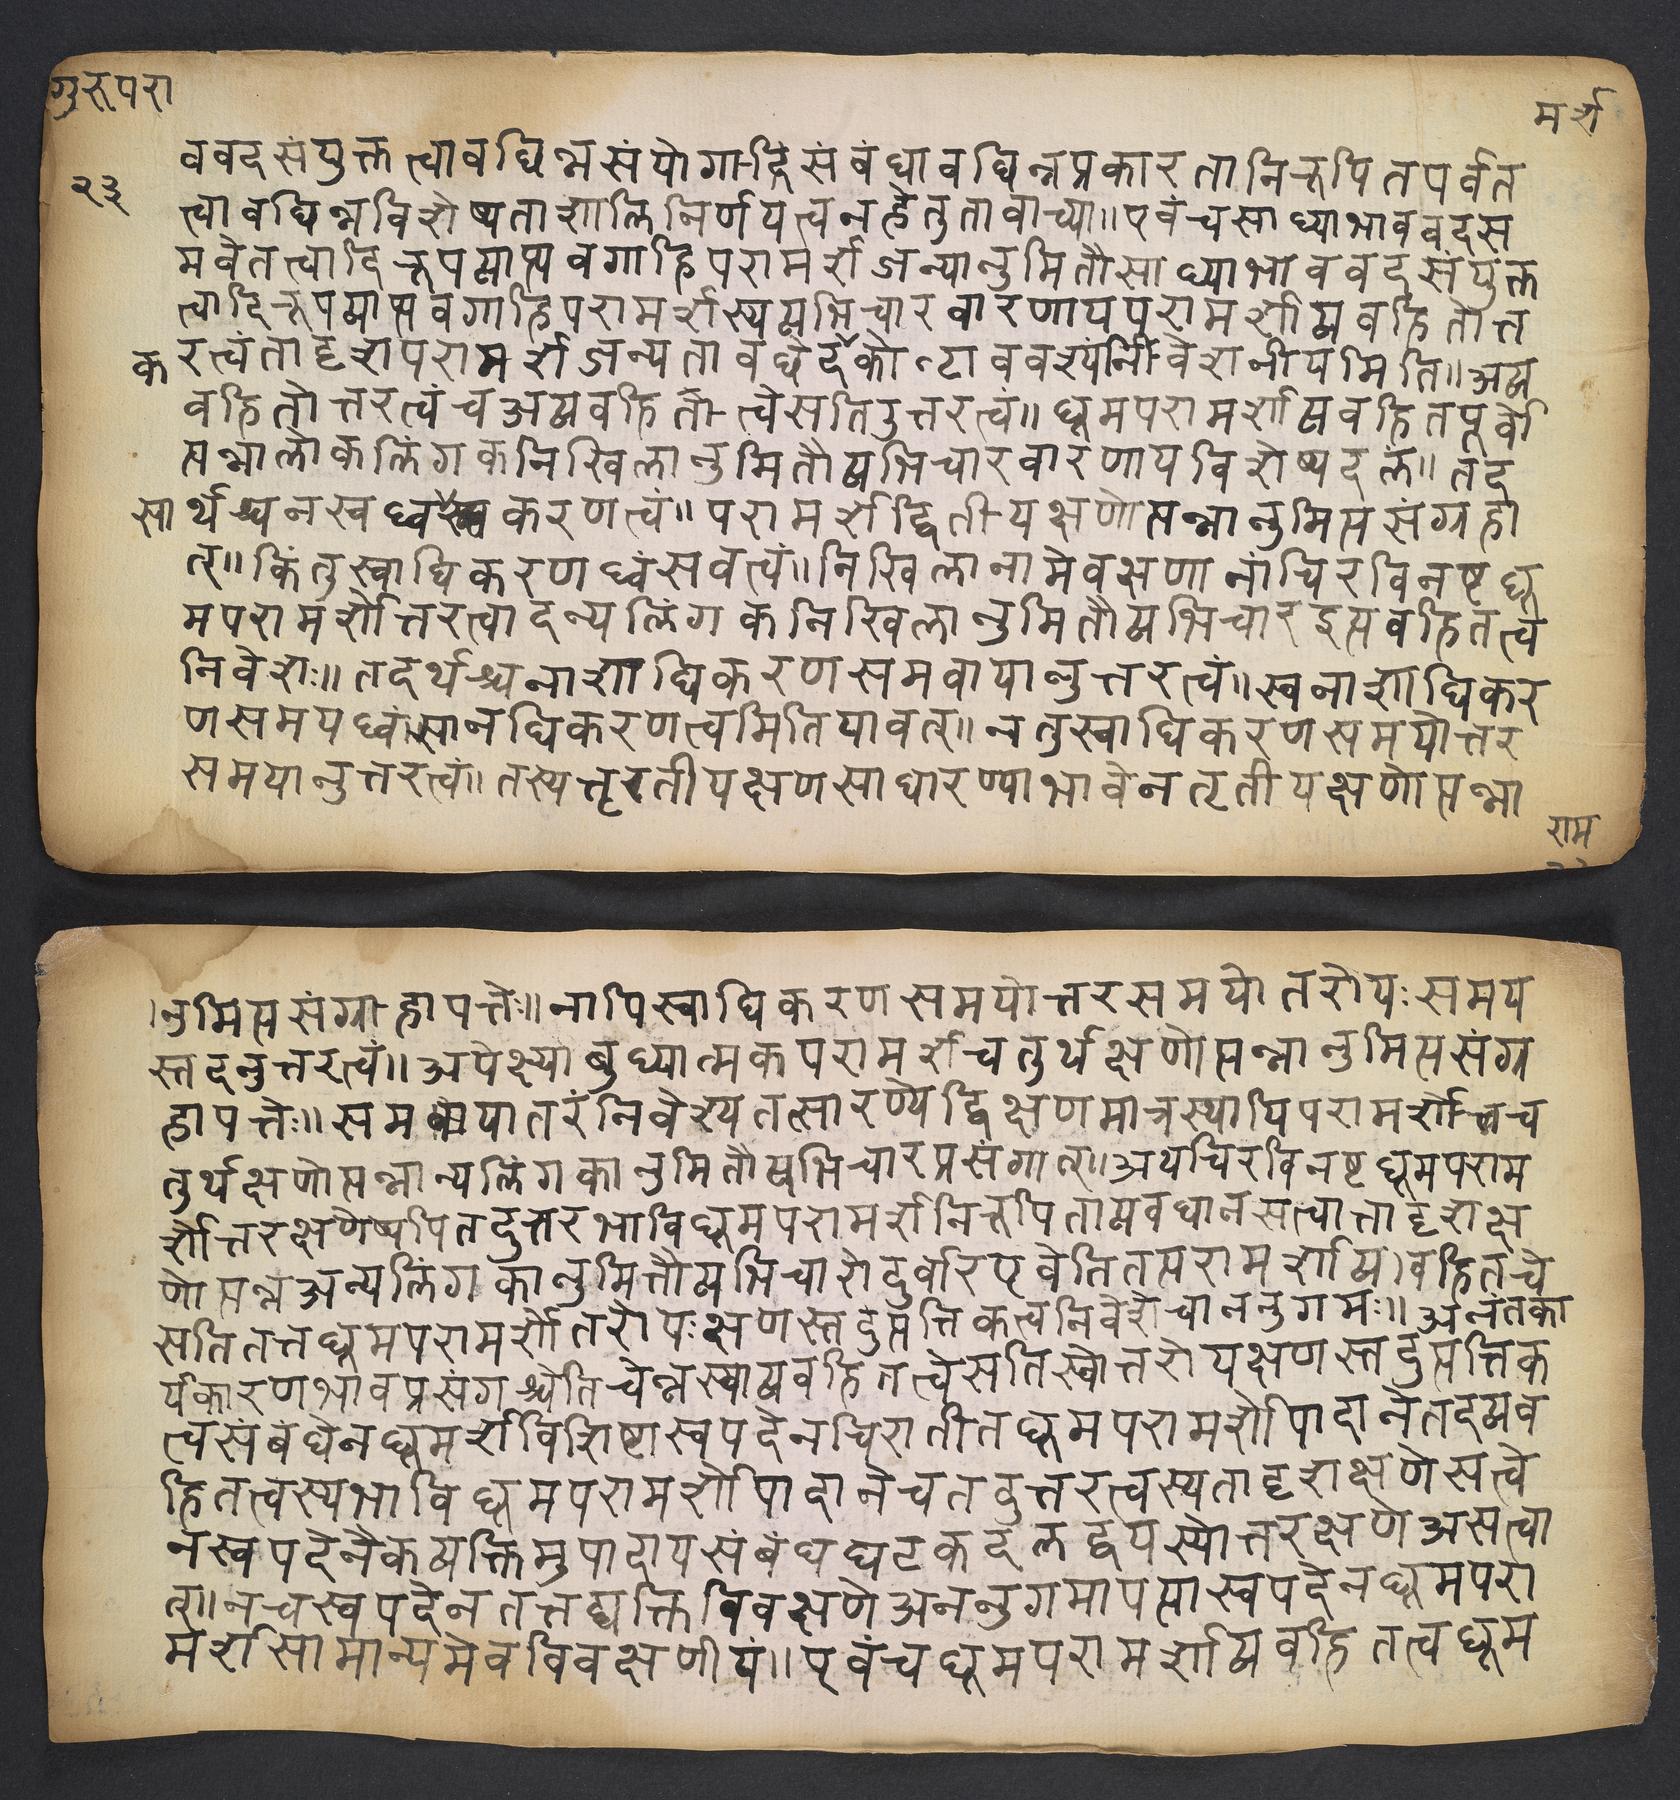 गुरूपरा
मर्श
२३
ववदसंयुक्तत्वावछिन्नसंयोगादिसंबंधावछिन्नप्रकारतानिरूपितपर्वत
त्वावछिन्नविशेष्यताशालिनिर्णयत्वनहेतुतावाच्या॥एवंचसाध्याभाववदस
मवेतत्वादिरूपव्याप्त्यवगाहिपरामर्शजन्यानुमितौसाध्याभाववदसंयुक्त
त्वादिरूपव्याप्त्यवगाहिपरामर्शस्यव्यभिचारवारणायपरामर्शाव्यवहितोत्त
करत्वंतादृशपरामर्शजन्यतावछेदककोटाववश्यंनिवेशनीयमिति॥अव्य
वहितोत्तरत्वंचअव्यवहितत्वेसतिउत्तरत्वं॥धूमपरामर्शाव्यवहितपूर्वो
त्पन्नालोकलिंगकनिखिलानुमितौव्यभिचारवारणायविशेष्यदलं॥तद
सार्थश्चनस्वध्वंसाधिकरणत्वं॥परामर्शद्वितीयक्षणोत्पन्नानुमित्यसंग्रहा
त्॥किंतुस्वाधिकरणध्वंसवत्वं॥निखिलानामेवक्षणानांचिरविनष्टधू
मपरामर्शोत्तरत्वादन्यलिंगकनिखिलानुमितौव्यभिचारइत्यवहितत्व
निवेशः॥तदर्थश्चनाशाधिकरणसमवायानुत्तरत्वं॥स्वनाशाधिकर
णसमयध्वंसानधिकरणत्वमितियावत्॥नतुस्वाधिकरणसमयोत्तर
समयानुत्तरत्वं॥तस्यतृतीयक्षणसाधारण्याभावेनतृतीयक्षणोत्पन्ना
राम
नुमित्यसंग्राहापत्तेः॥नापिस्वाधिकरणसमयोत्तरसमयोतरोयःसमय
स्तदनुत्तरत्वं॥अपेक्ष्याबुध्यात्मकपरामर्शचतुर्थक्षणोत्पन्नानुमित्यसंग्र
हापत्तेः॥समयांतरंनिवेश्यतत्सारण्येद्विक्षणमात्रस्थायिपरामर्शाच्च
तुर्थक्षणोत्पन्नान्यलिंगकानुमितौव्यभिचारप्रसंगात्॥अथचिरविनष्टधूमपराम
र्शोत्तरक्षणेष्वपितदुत्तरभाविधूमपरामर्शनिरूपिताव्यवधानसत्वात्तादृशक्ष
णोत्पन्नअन्यलिंगकानुमितौव्यभिचारोदुर्वारएवेतितत्परामर्शाव्यवहितत्वे
सतितत्तधूमपरामर्शोतरोयःक्षणस्तदुत्पत्तिकत्वनिवेशेचाननुगमः॥अनंतका
र्यकारणभावप्रसंगश्चेतिचेन्नस्वाव्यवहितत्वेसतिस्वोत्तरोयक्षणस्तदुत्पत्तिक
त्वसंबंधेनधूमर्शविशिष्टास्वपदेनचिरातीतधूमपरामर्शोपादानेतदव्यव
हितत्वस्यभाविधूमपरामर्शोपादानेचतदुत्तरत्वस्यतादृशक्षणेसत्वे
नस्वपदेनैकव्यक्तिमुपादायसंबंधघटकदलद्वयस्योत्तरक्षणेअसत्वा
त्॥नचस्वपदेनतत्तद्यक्तिविवक्षणेअननुगमापत्यास्वपदेनधूमपरा
मर्शसामान्यमेवविवक्षणीयं॥एवंचधूमपरामर्शाव्यवहितत्वधूम